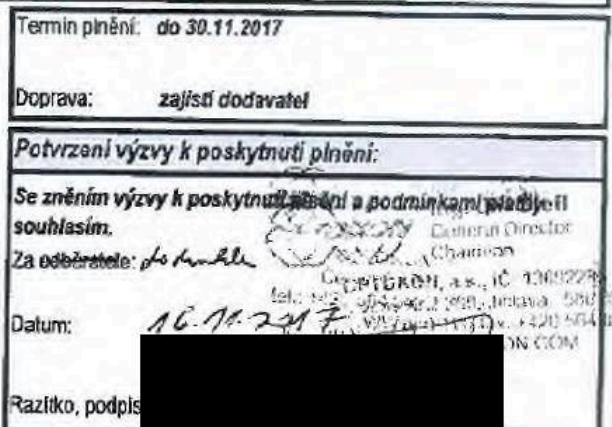 Termín plnění: do 30.11.2017
Doprava: zajistí dodavatel
Potvrzení výzvy k poskytnutí plnění:
Se zněním výzvy k poskytnutí plnění a podmínkami platby
souhlasím.
General Director
Chairman
Za odběratele: dodavatele
OPTOKON, a.s., IČ
Datum: 16.11.2017
Razítko, podpis